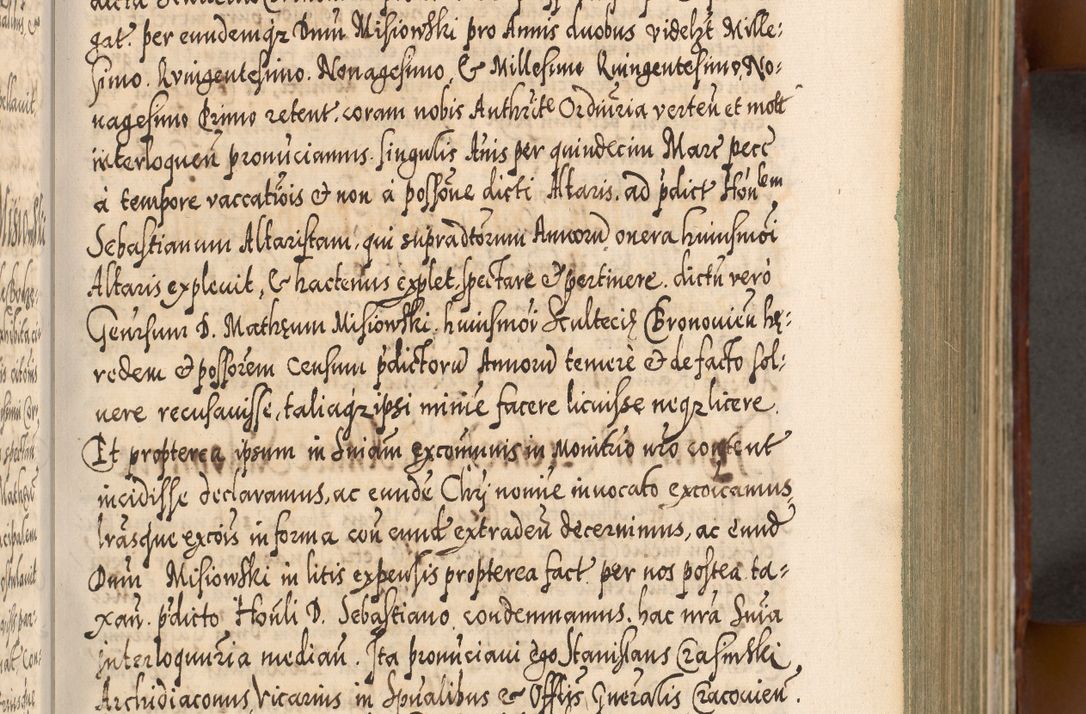 gat. per eundemqz Dnum Misiowski pro Annis duobus videlzt Mille:
simo. Quingentesimo. Nonagesimo, & Millesimo Quingentesimo, No:
nagesimo Primo retent. coram nobis Authrite Ordnria verten et mott
interloquen pronuciamus. singulis Anis per quindecim Marc pecc
à tempore vaccatiois & non à possone dicti Altaris. ad pdict Honlem
Sebastianum Altaristam, qui supradtorum Annoru onera huiusmoi
Altaris explevit, & hactenus explet, spectare & pertinere. dictu vero
Genrsum D. Mathęum Misiowski. huiusmoi Scultecię Bronovien hę:
redem & possorem Censum pdictoru Annoru temere & de facto sol:
vere recusavisse, taliaqz ipsi minie facere licuisse neqz licere.
Et propterea ipsum in Sniam excommunis in Monitrio nro content
incidisse declaramus, ac eunde Chri nomine invocato excoicamus,
lrasque excois in forma con eund extraden decernimus, ac eund
Dnum Misiowski in litis expensis propterea fact per nos postea ta=
xan. pdicto Honli D. Sebastiano condemnamus. hac nra Snia
Interloqunria median. Ita pronuciavi ego Stanislaus Crasinski
Archidiaconus, Vicarius in Spualibus & Offtis Gneralis Cracovien.